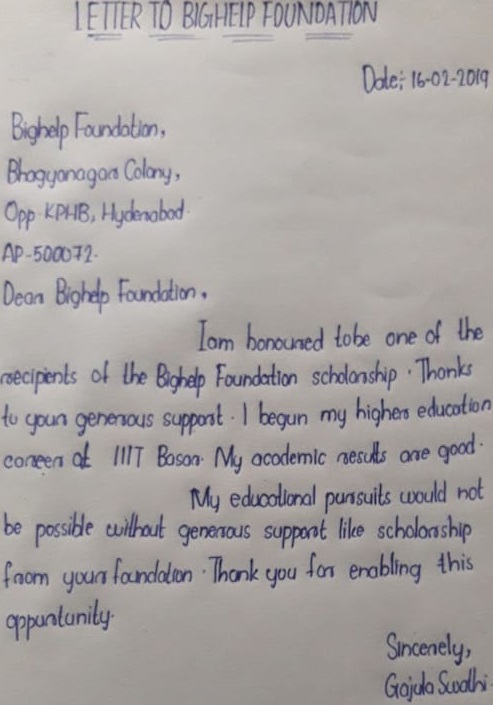 LETTER TO BIGHELP FOUNDATION
Date: 16-02-2019
Bighelp Foundation,
Bhagyanagar Colony,
Opp-KPHB, Hyderabad.
AP-500072.
Dear Bighelp Foundation,
Iam honoured tobe one of the
recipients of the Bighelp Foundation scholarship. Thanks
to your generous support. I begun my higher education
career at IIIT Basar. My academic results are good.
My educational pursuits would not
be possible without generous support like scholarship
from your foundation. Thank you for enabling this
oppurtunity.
Sincerely,
Gajula Swathi.